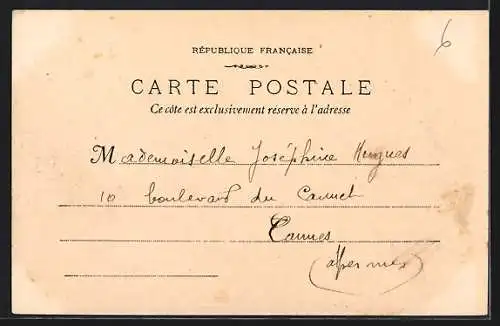 6
RÉPUBLIQUE FRANÇAISE
CARTE POSTALE
Ce côté est exclusivement réservé à l'adresse
Mademoiselle Joséphine Hugues
10 boulevard du Cannet
Cannes